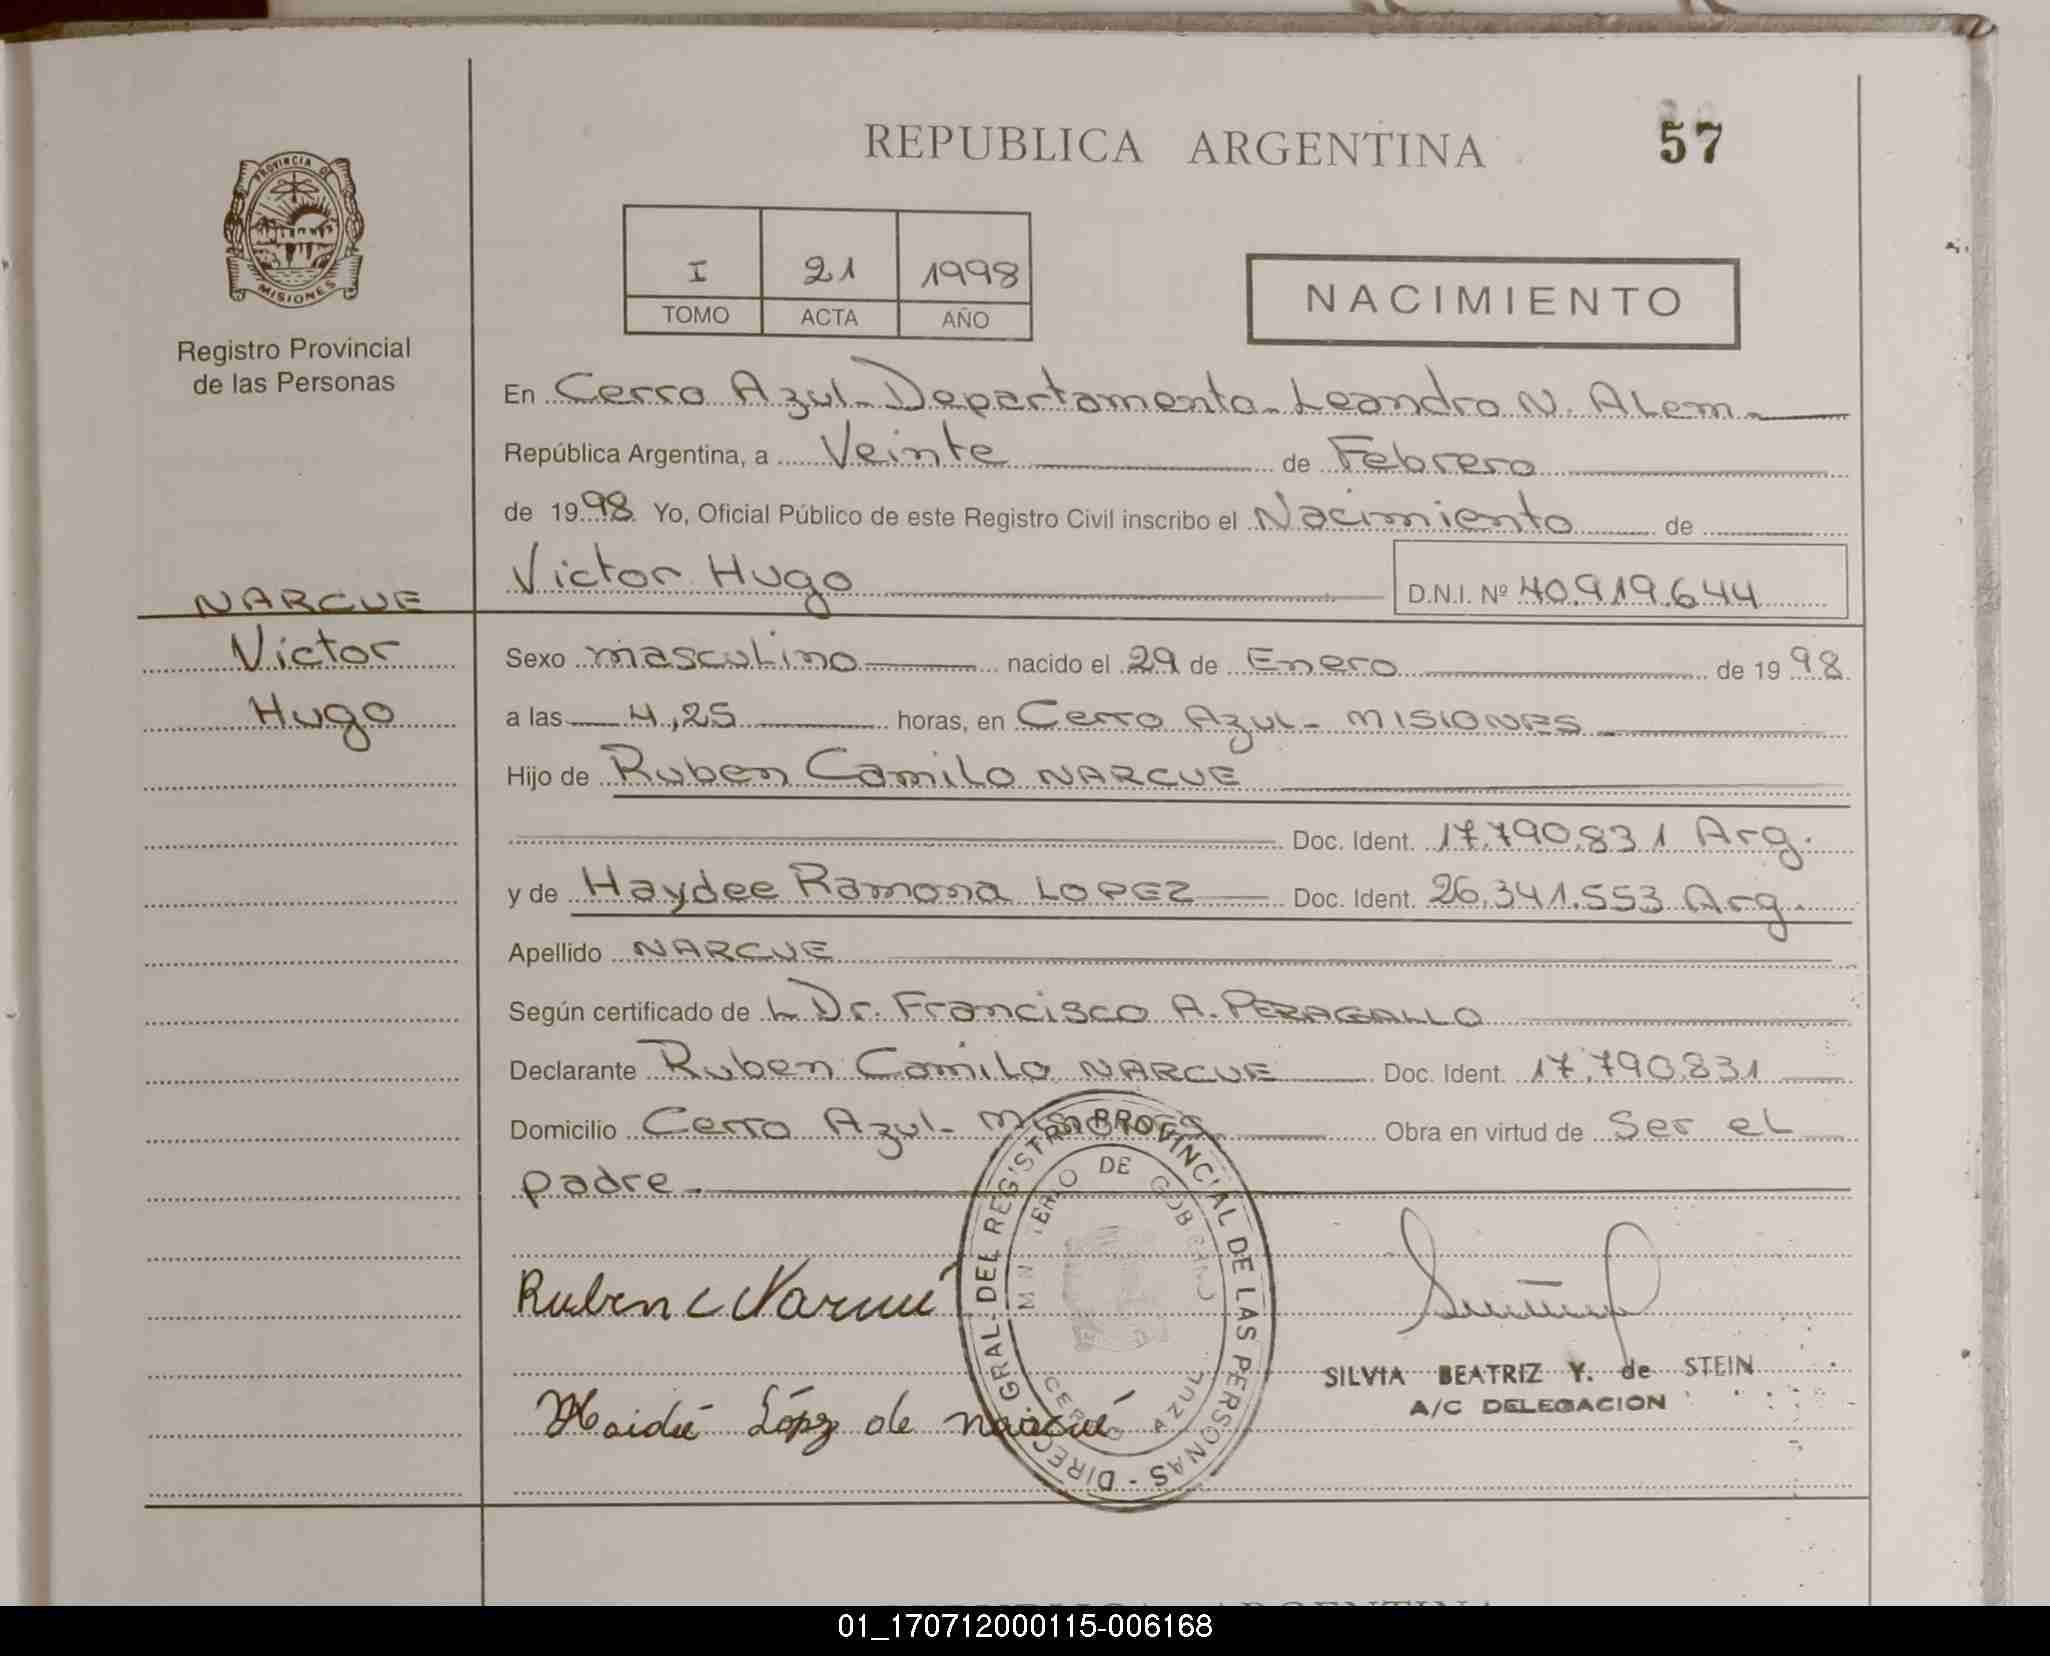 REPUBLICA ARGENTINA
57
PROVINCIA DE
MISIONES
Registro Provincial
de las Personas
I 21 1998
TOMO ACTA AÑO
NACIMIENTO
En Cerro Azul - Departamento - Leandro N. ALem -
República Argentina, a Veinte de Febrero
de 1998 Yo, Oficial Público de este Registro Civil inscribo el Nacimiento de
Victor Hugo D.N.I. Nº 40.919.644
NARCUE
Victor
Hugo
Sexo masculino nacido el 29 de Enero de 1998
a las 4,25 horas, en Cerro Azul - MISIONES -
Hijo de Ruben Camilo NARCUE
Doc. Ident. 17.790.831 Arg.
y de Haydee Ramona LOPEZ Doc. Ident. 26.341.553 Arg.
Apellido NARCUE
Según certificado de L Dr. Francisco A. PERAGALLO
Declarante Ruben Camilo NARCUE Doc. Ident. 17.790.831
Domicilio Cerro Azul - Misiones Obra en virtud de Ser el
padre.
DIREC GRAL. DEL REGISTRO PROVINCIAL DE LAS PERSONAS -
MINISTERIO DE GOBIERNO
CERRO AZUL
Ruben C Narcué
Haideé López de Narcué
SILVIA BEATRIZ Y. de STEIN
A/C DELEGACION
01_170712000115-006168